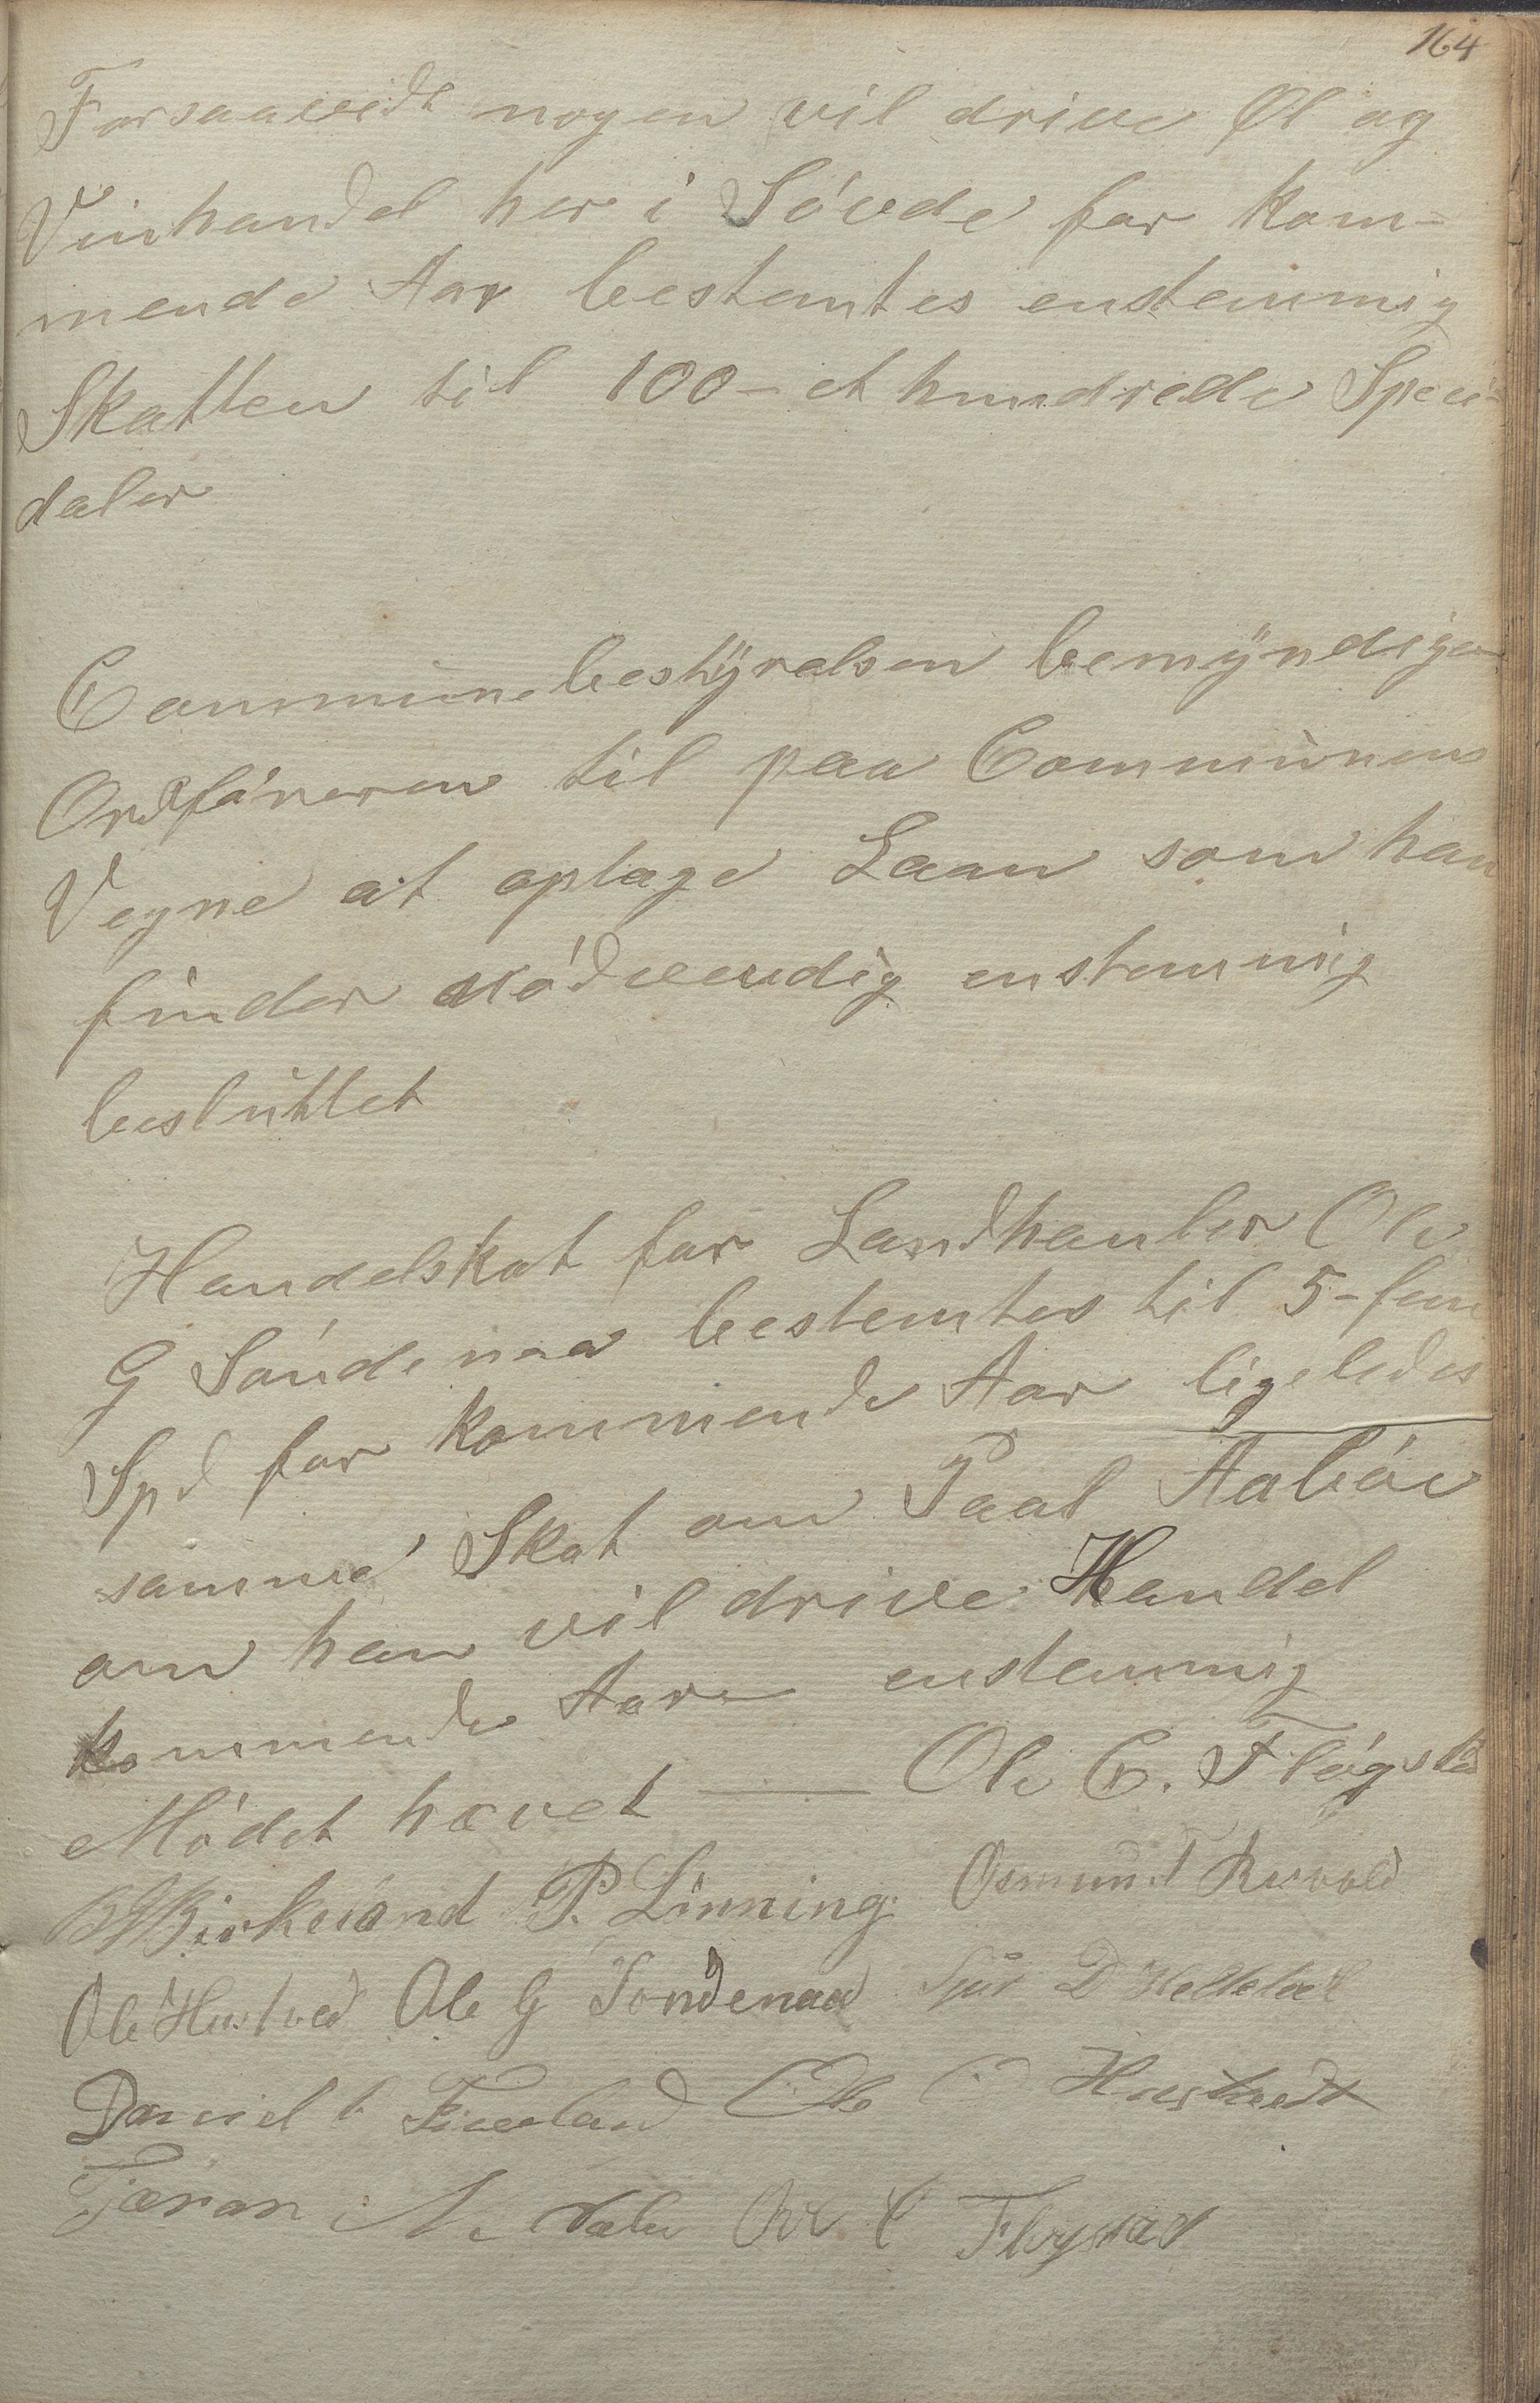 164
Forsaavidt nogen vil drive Øl og
Vinhandel her i Søvde for kom-
mende Aar bestemtes enstemmig
Skatten til 100 - et hundrede Speci-
daler
Communebestyrelsen bemyndiger
Ordføreren til paa Communens
Vegne at optage Laan som han
finder nødvendig enstemmig
besluttet
Handelskat for Landhanler Ole
G Søndenaa bestemtes til 5 - fem
Spd for kommende Aar ligeledes
samme Skat om Paal Aabøe
om han vil drive Handel
kommende Aar enstemmig
Mødet hævet — Ole C. Fløgstad
Birkeland P. Lønning Osmund
Ole Hustved Ole G Søndenaa D
Daniel Ole Hustvedt
N. Ole C Fløgstad